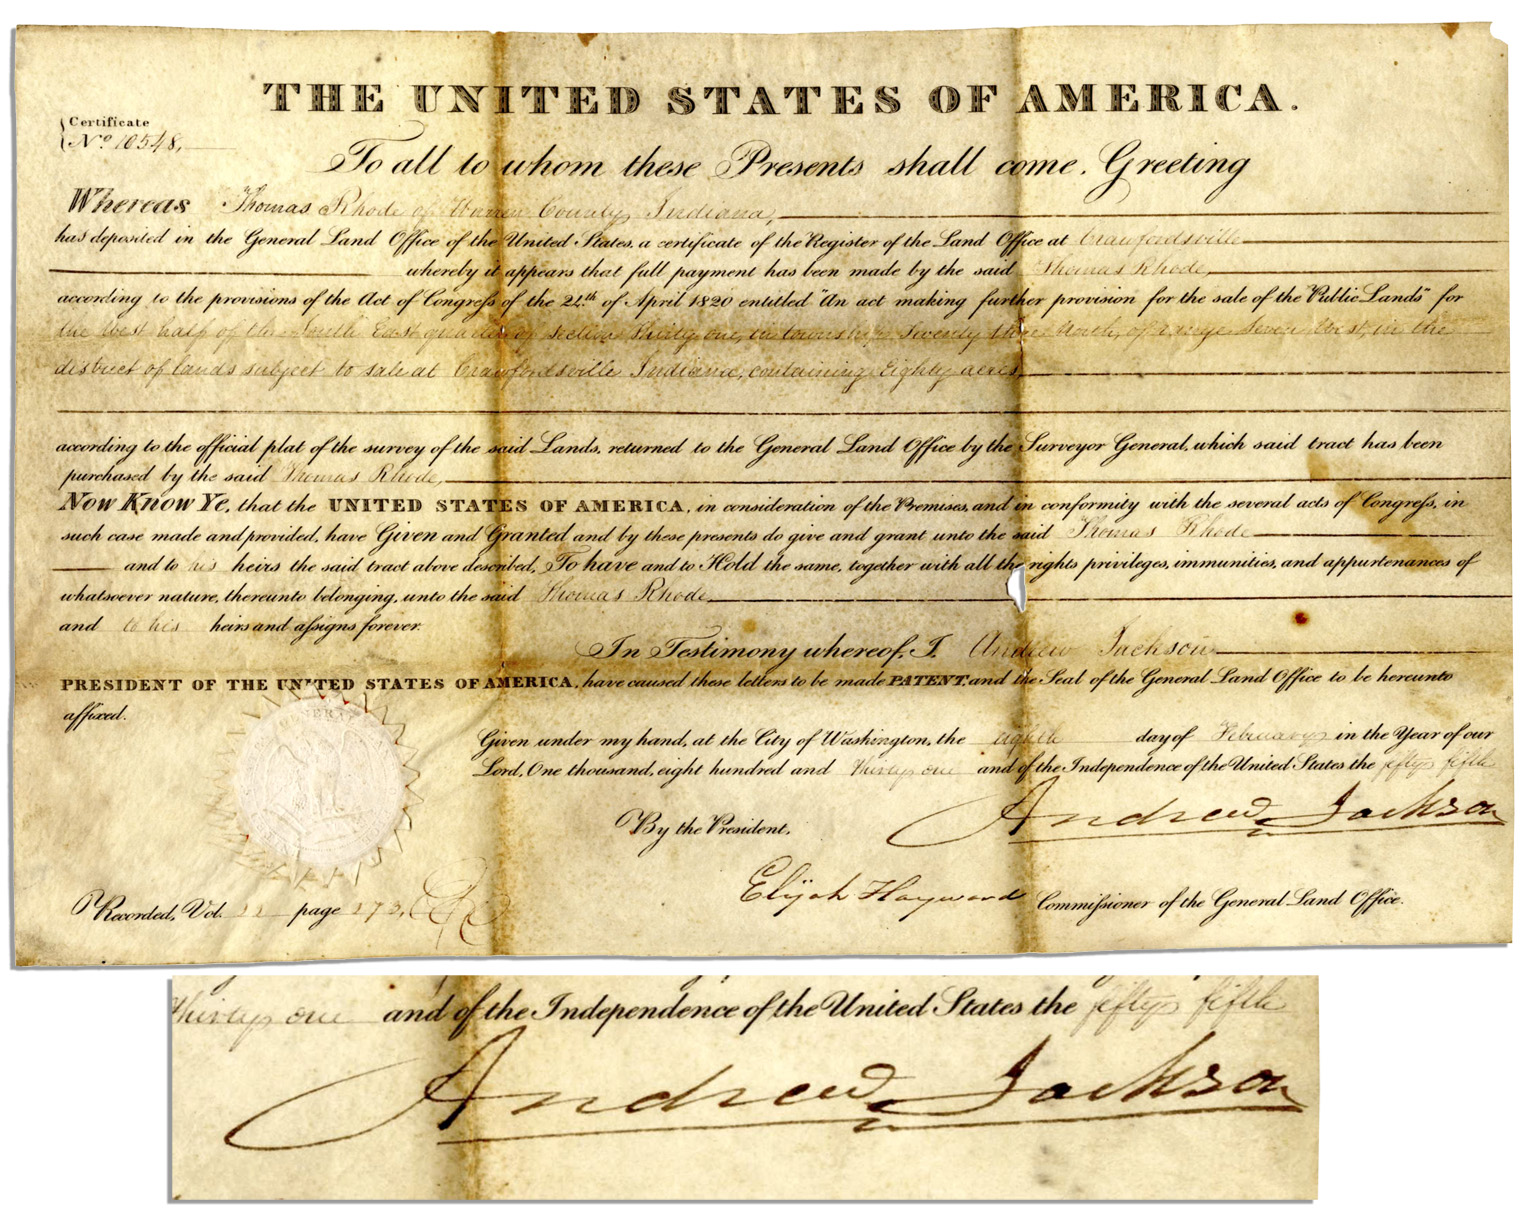 THE UNITED STATES OF AMERICA.
Certificate
No 10548,
To all to whom these Presents shall come, Greeting
Whereas Thomas Rhode of Warren County, Indiana,
has deposited in the General Land Office of the United States, a certificate of the Register of the Land Office at Crawfordsville
whereby it appears that full payment has been made by the said Thomas Rhode,
according to the provisions of the Act of Congress of the 24th of April 1820 entitled "An act making further provision for the sale of the Public Lands" for
the West half of the South East quarter of section thirty one, in township Twenty three North, of range seven West, in the
district of lands subject to sale at Crawfordsville Indiana, containing Eighty acres,
according to the official plat of the survey of the said Lands, returned to the General Land Office by the Surveyor General, which said tract has been
purchased by the said Thomas Rhode,
Now Know Ye, that the UNITED STATES OF AMERICA, in consideration of the Premises, and in conformity with the several acts of Congress, in
such case made and provided, have Given and Granted and by these presents do give and grant unto the said Thomas Rhode
and to his heirs the said tract above described, To have and to Hold the same, together with all the rights privileges, immunities, and appurtenances of
whatsoever nature, thereunto belonging, unto the said Thomas Rhode,
and to his heirs and assigns forever.
In Testimony whereof, I, Andrew Jackson
PRESIDENT OF THE UNITED STATES OF AMERICA, have caused these letters to be made PATENT and the Seal of the General Land Office to be hereunto
affixed.
Given under my hand, at the City of Washington, the eighth day of February in the Year of our
Lord, One thousand, eight hundred and thirty one and of the Independence of the United States the fifty fifth
Andrew Jackson
By the President,
Elijah Hayward Commissioner of the General Land Office.
Recorded, Vol. page 273,
thirty one and of the Independence of the United States the fifty fifth
Andrew Jackson